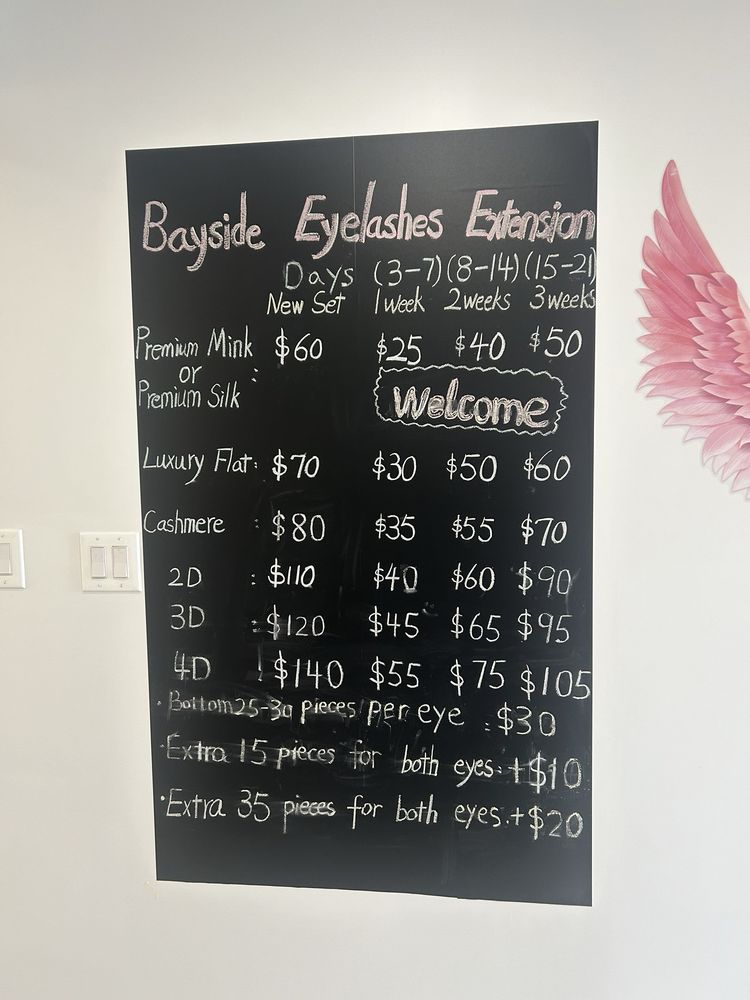 Bayside Eyelashes Extension
Days (3-7) (8-14) (15-21)
New Set 1 week 2 weeks 3 weeks
Premium Mink $60 $25 $40 $50
or :
Premium Silk
Welcome
Luxury Flat: $70 $30 $50 $60
Cashmere : $80 $35 $55 $70
2D : $110 $40 $60 $90
3D : $120 $45 $65 $95
4D : $140 $55 $75 $105
· Bottom 25-30 pieces per eye : $30
· Extra 15 pieces for both eyes: +$10
· Extra 35 pieces for both eyes: +$20